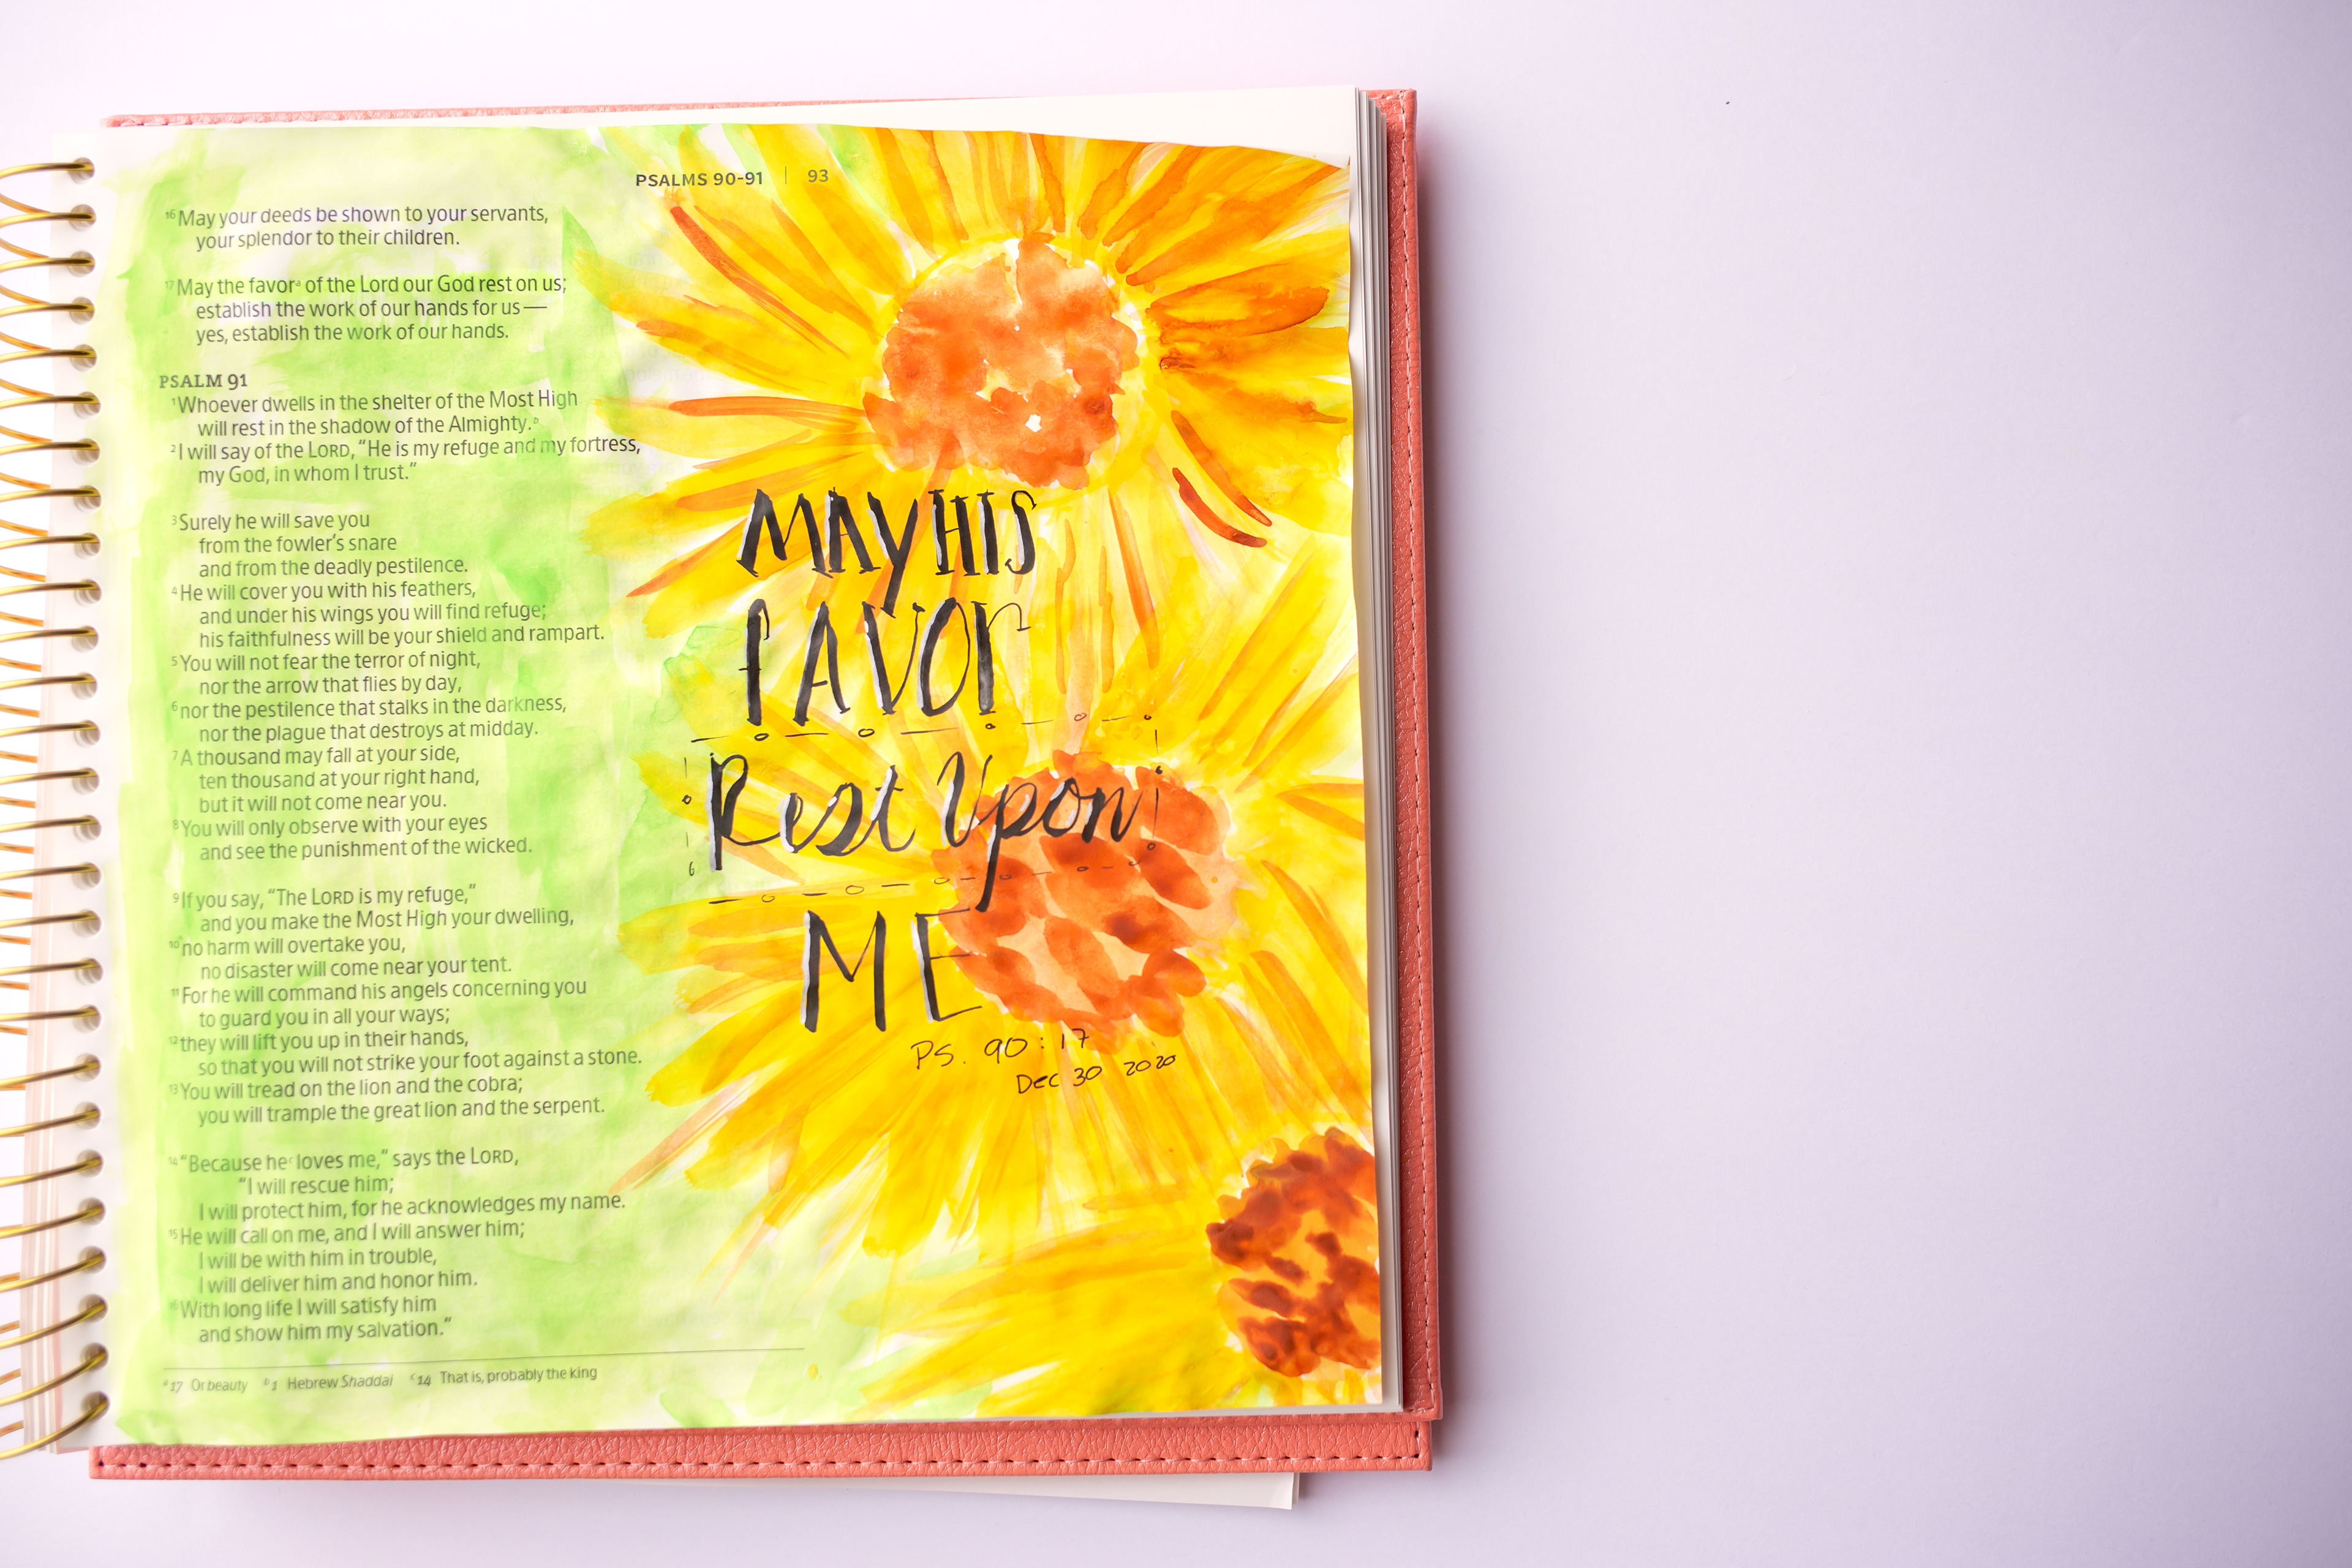 PSALMS 90-91 | 93
16 May your deeds be shown to your servants,
your splendor to their children.
17 May the favor a of the Lord our God rest on us;
establish the work of our hands for us —
yes, establish the work of our hands.
PSALM 91
1 Whoever dwells in the shelter of the Most High
will rest in the shadow of the Almighty. b
2 I will say of the LORD, “He is my refuge and my fortress,
my God, in whom I trust.”
3 Surely he will save you
from the fowler’s snare
and from the deadly pestilence.
4 He will cover you with his feathers,
and under his wings you will find refuge;
his faithfulness will be your shield and rampart.
5 You will not fear the terror of night,
nor the arrow that flies by day,
6 nor the pestilence that stalks in the darkness,
nor the plague that destroys at midday.
7 A thousand may fall at your side,
ten thousand at your right hand,
but it will not come near you.
8 You will only observe with your eyes
and see the punishment of the wicked.
9 If you say, “The LORD is my refuge,”
and you make the Most High your dwelling,
10 no harm will overtake you,
no disaster will come near your tent.
11 For he will command his angels concerning you
to guard you in all your ways;
12 they will lift you up in their hands,
so that you will not strike your foot against a stone.
13 You will tread on the lion and the cobra;
you will trample the great lion and the serpent.
14 “Because he c loves me,” says the LORD,
“I will rescue him;
I will protect him, for he acknowledges my name.
15 He will call on me, and I will answer him;
I will be with him in trouble,
I will deliver him and honor him.
16 With long life I will satisfy him
and show him my salvation.”
a 17 Or beauty b 1 Hebrew Shaddai c 14 That is, probably the king
MAY HIS
FAVOr
Rest Upon
ME
PS. 90:17
Dec 30 2020